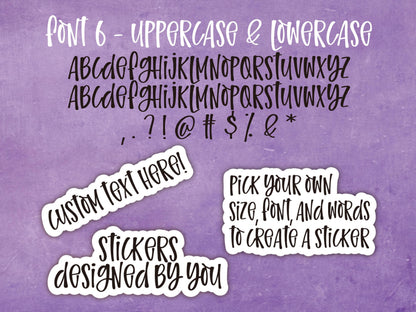 FONT 6 - UPPERCASE & LOWERCASE
ABCdefGHIJKLMNOPQRSTUVWXYZ
ABCdefGHIJKLMNOPQRSTUVWXYZ
, . ? ! @ # $ % & *
CUSTOM TEXT HERE!
PICK YOUR OWN
SIZE, FONT, AND WORDS
TO CREATE A STICKER
STICKERS
designed BY YOU